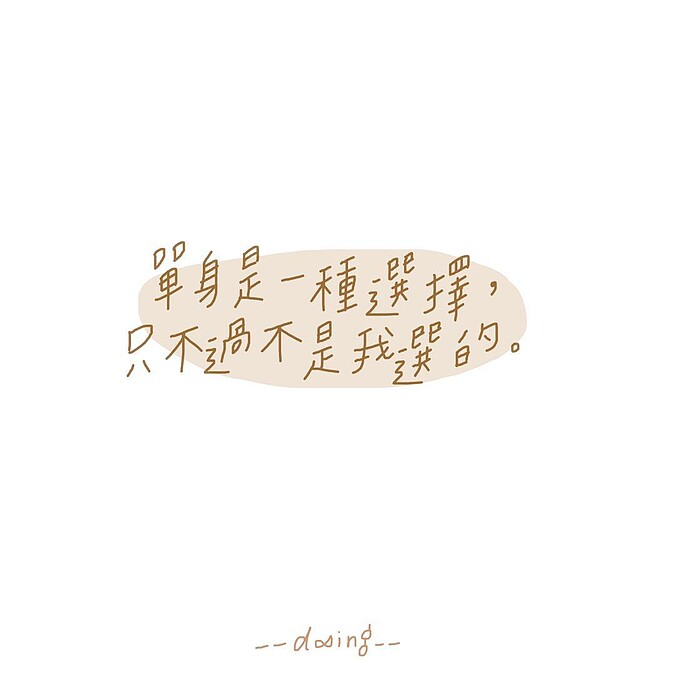 單身是一種選擇，
只不過不是我選的。
--dosing--